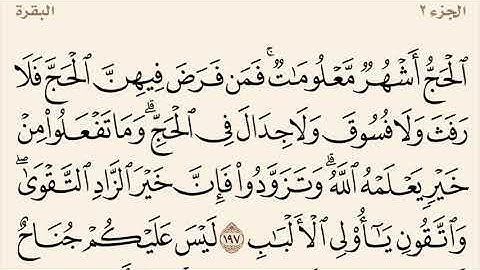 الجزء ٢
البقرة
ٱلْحَجُّ أَشْهُرٌ مَّعْلُومَٰتٌ ۚ فَمَن فَرَضَ فِيهِنَّ ٱلْحَجَّ فَلَا
رَفَثَ وَلَا فُسُوقَ وَلَا جِدَالَ فِى ٱلْحَجِّ ۗ وَمَا تَفْعَلُوا۟ مِنْ
خَيْرٍ يَعْلَمْهُ ٱللَّهُ ۗ وَتَزَوَّدُوا۟ فَإِنَّ خَيْرَ ٱلزَّادِ ٱلتَّقْوَىٰ ۖ
وَٱتَّقُونِ يَٰٓأُو۟لِى ٱلْأَلْبَٰبِ ١٩٧ لَيْسَ عَلَيْكُمْ جُنَاحٌ